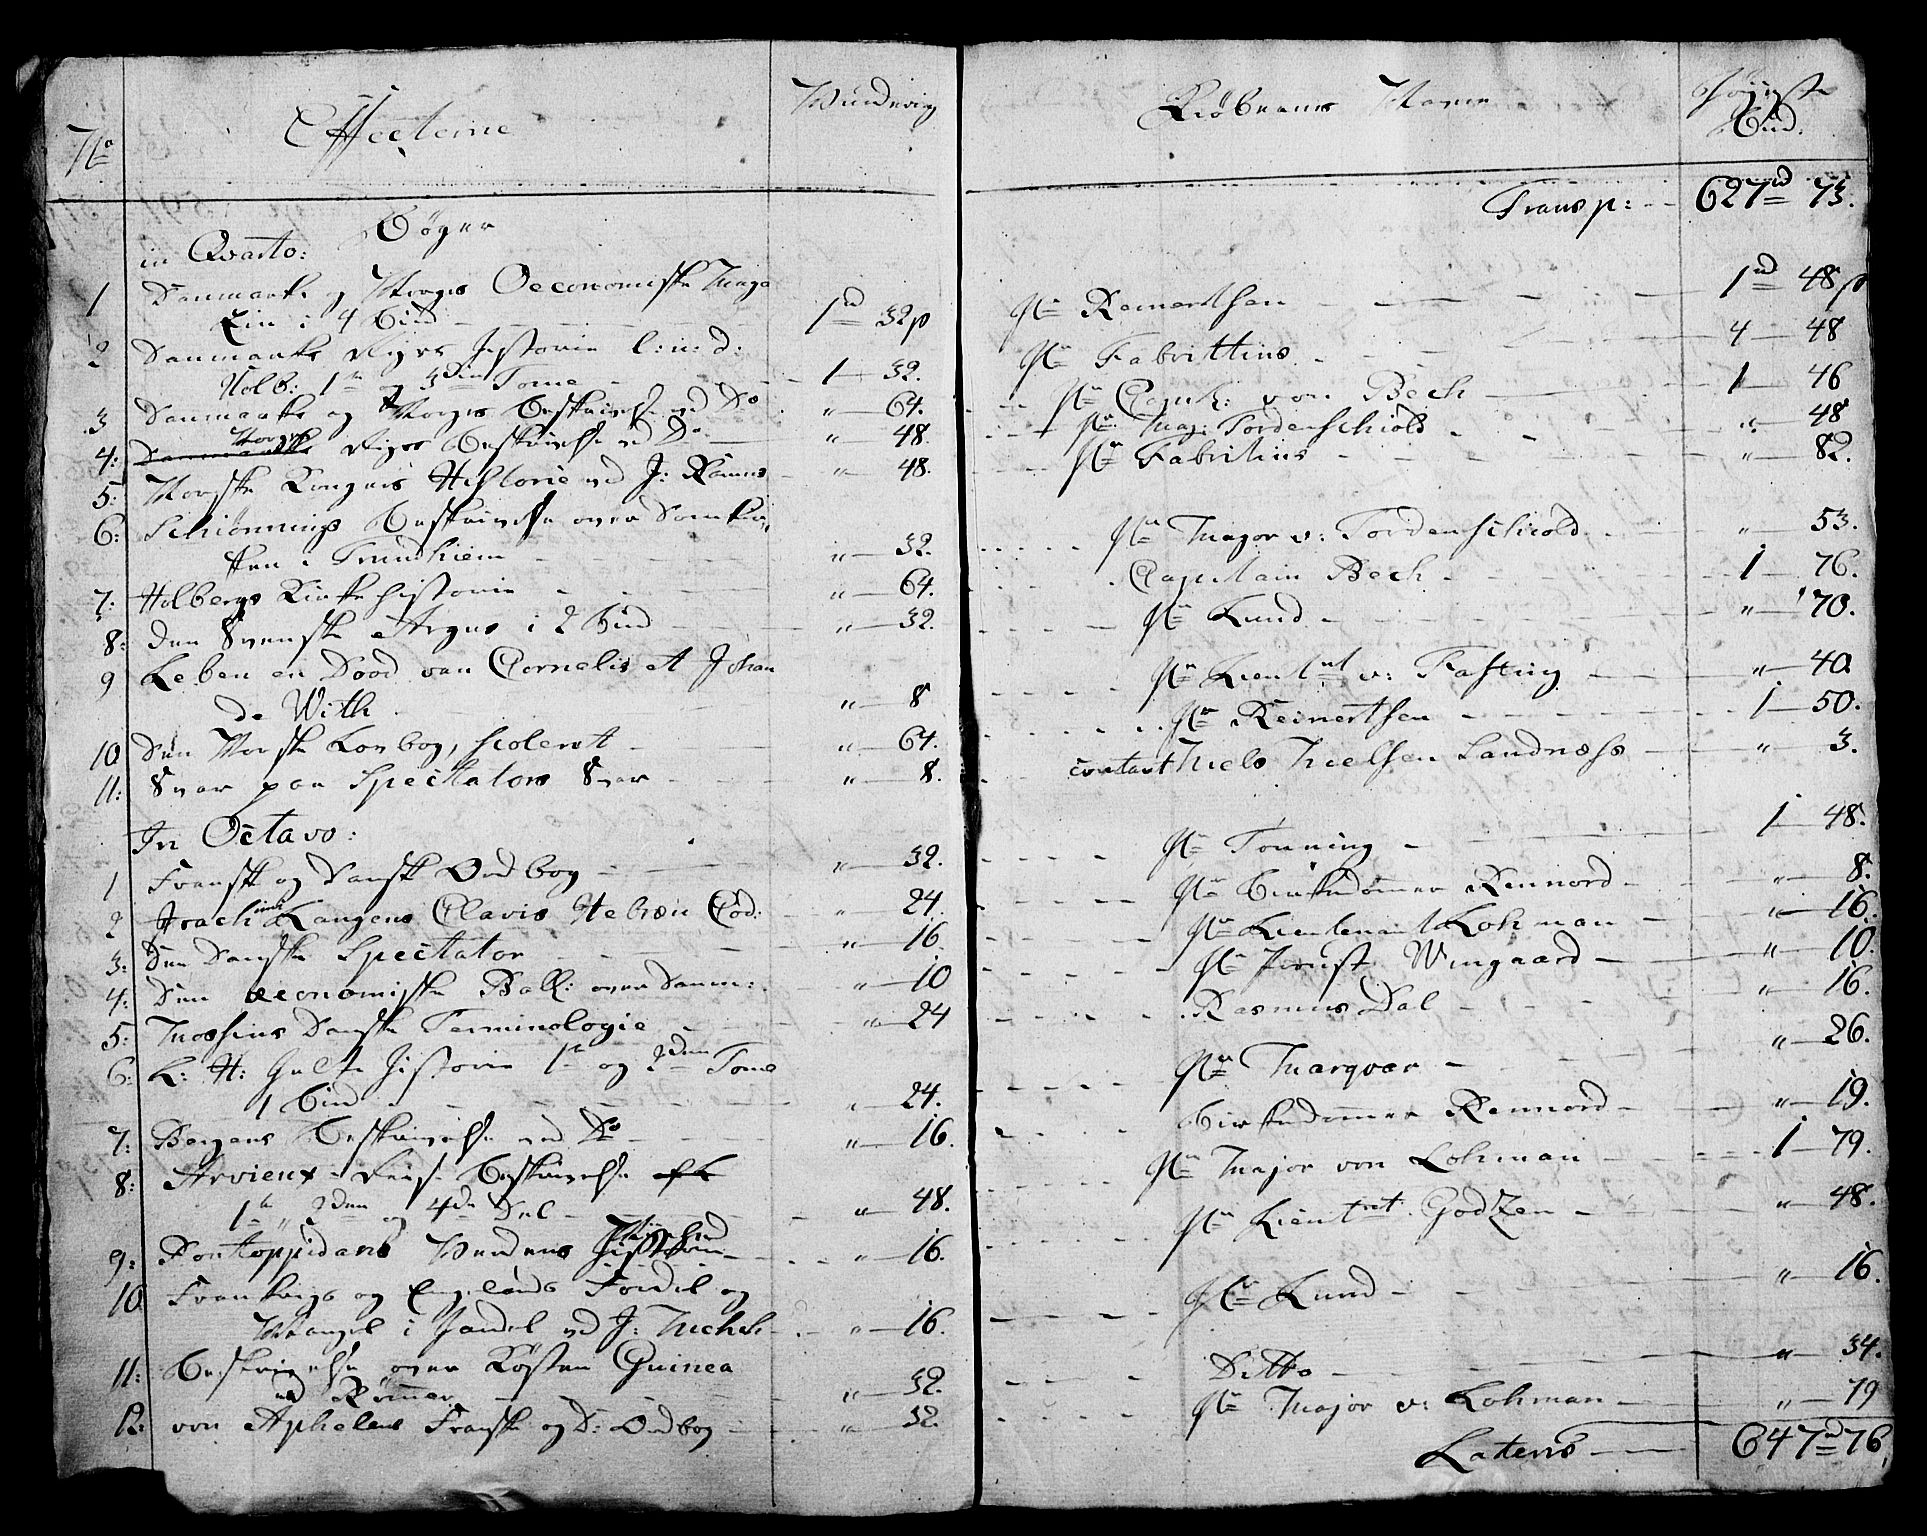 No
Effecterne
Wurdering
Bøger
in Qvarto:
1 Danmarks og Norges Oeconomiske Maga
Zin i 4 Bind 1 rd 32 p
2 Danmarks Riges Historie
Holb: 1te og 3die Tome 1 32.
3 Danmarks og Norges Beskrivelse ved Do " 64.
4: Norges Riges Beskrivelse ved Do " 48.
5: Norske Kongers Historie ved J: Ramus " 48.
6: Schiønnings Beskrivelse over Domkir
ken i Trundhiem " 32.
7: Holbergs Kirkehistorie " 64.
8: den Svenske Argus i 2 Bind " 32.
9 Leben en Dood van Cornelis et Johan
de With " 8
10 Den Norske Lovbog, " 64.
11: Svar paa Spectators Svar " 8.
In Octavo:
1 Fransk og Dansk Ordbog " 32.
2 Joachimi Langens Clavis Hebræi Cod: " 24
3: Den Danske Spectator " 16
4: Den œconomiske Ball: over Danm: " 10
5: Mossins Danske Terminologie " 24
6: L: H: Historie 1te og 2den Tome
1 Bind " 24.
7: Bergens Beskrivelse ved Do " 16.
8: Arvieux Reise Beskrivelse
1te " 2den og 4de Del " 48.
9: Pontoppidans Verdens " 16.
10 Frankrigs og Englands Fordel og
Mangel i Handel ved J: " 16.
11: Beskrivelse over Kysten Guinea
ved Rømer " 32.
12: von Aphelens Franske og D: Ordbog " 32.
Kiøberens Navn
Høyeste
Bud.
Transp: 627 rd 73.
Hr Reinertsen 1 rd 48 p
Hr Fabrittius 4 48
Hr Capit: von Bech 1 46
Hr Maj: Tordenschiold " 48
Hr Fabritius " 82.
Hr Major v: Tordenschiold " 53.
Capitain Bech 1 76.
Hr Lund " 70.
Hr Lieutnt v: Fasting " 40
Hr Reinertsen 1 50.
contant Niels Nielsen Landnæss " 3.
Hr Tonning 1 48.
Hr Birkedommer Rennord " 8.
Hr Lieutenant Lohman " 16.
Hr Provst Wingaard " 10.
Rasmus Dal " 16.
Hr Marqvar " 26.
Birkedommer Rennord " 19.
Hr Major von Lohman 1 79.
Hr Lieutnt. Godtzen " 48.
Hr Lund " 16.
Ditto " 34.
Hr Major v: Lohman " 79
Latens 647 rd 76